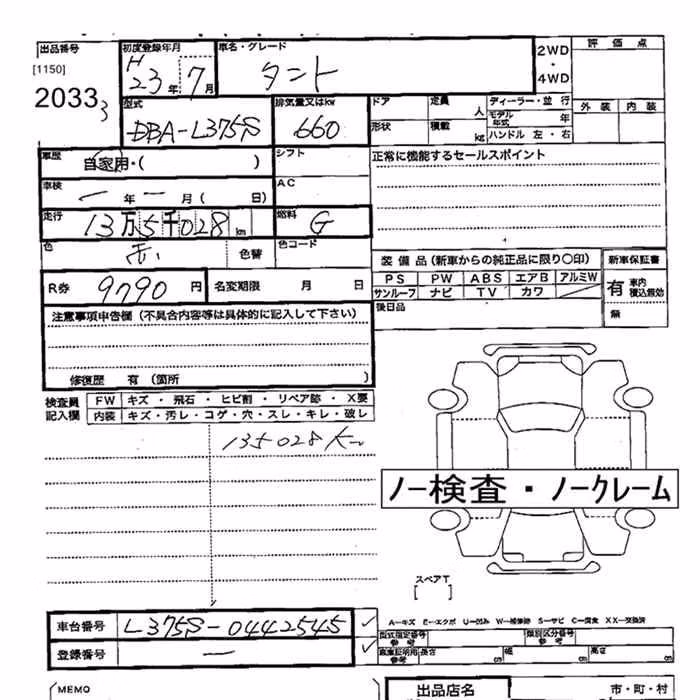 出品番号
[1150]
2033 3
初度登録年月
H
23年 7月
車名・グレード
タント
2WD
・
4WD
評価点
外装 内装
型式
DBA-L375S
排気量又はkw
660
ドア 定員 人
形状 積載 kg
ディーラー・並 行
モデル年式 年
ハンドル 左・右
車歴
自家用・( )
シフト
正常に機能するセールスポイント
車検
ー 年 ー 月 ( 日)
AC
走行
13万5千028 km
燃料
G
色
赤 色替
色コード
装備品(新車からの純正品に限り○印)
新車保証書
PS PW ABS エアB アルミW
サンルーフ ナビ TV カワ
有 車内積込無効
無
R券 9790 円
名変期限 月 日
後日品
注意事項申告欄(不具合内容等は具体的に記入して下さい)
修復歴 有 (箇所 )
検査員記入欄
FW キズ ・ 飛石 ・ ヒビ割 ・ リペア跡 ・ X要
内装 キズ・汚レ・コゲ・穴・スレ・キレ・破レ
135028K
ノー検査・ノークレーム
スペアT
[ ]
車台番号 L375S-0442545
登録番号 ー
A-キズ E-エクボ U-凹み W-補修跡 S-サビ C-腐食 XX-交換済
型式指定番号 参考
類別区分番号 参考
車庫証明用 参考 長さ cm 幅 cm 高さ cm
MEMO
出品店名
市・町・村